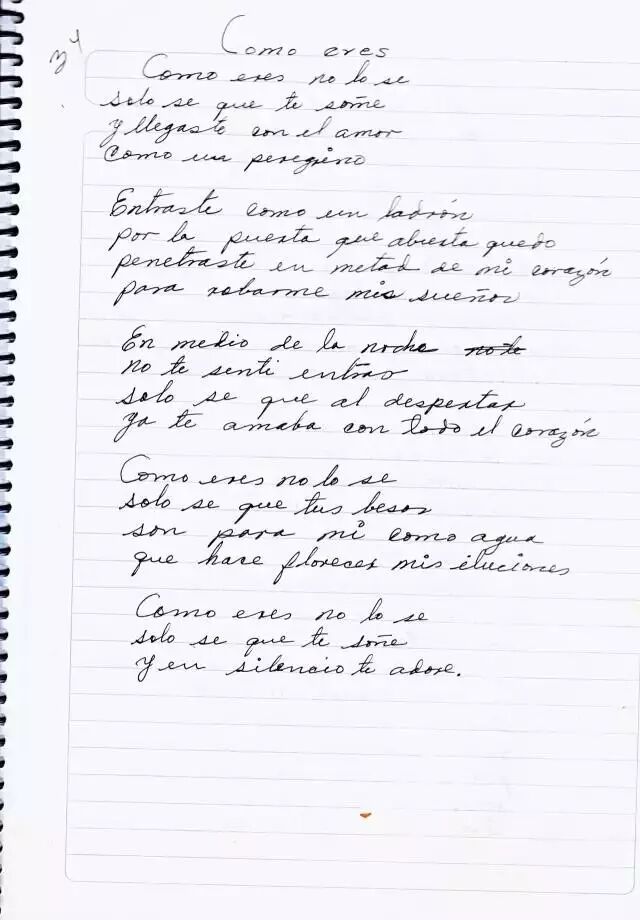 Como eres
Como eres no lo se
solo se que te soñe
y llegaste con el amor
como un peregrino
Entraste como un ladrón
por la puerta que abierta quedo
penetraste en metad de mi corazón
para robarme mis sueños
En medio de la noche no te
no te senti entrar
solo se que al despertar
ya te amaba con todo el corazón
Como eres no lo se
solo se que tus besos
son para mi como agua
que hace florecer mis iluciones
Como eres no lo se
solo se que te soñe
y en silencio te adore.